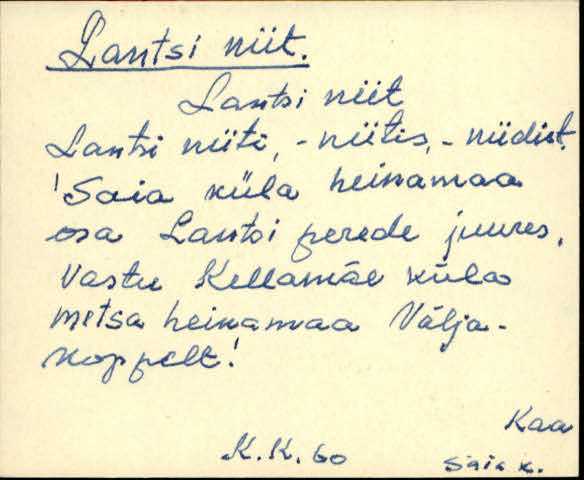 Lantsi niit.
Lantsi niit
Lantsi niiti, -niitis, -niidist.
'Saia küla heinamaa
osa Lantsi perede juures,
vastu Kellamäe küla
metsa heinamaa Välja-
koppelt!
Kaa
K.K. 60
Saia k.